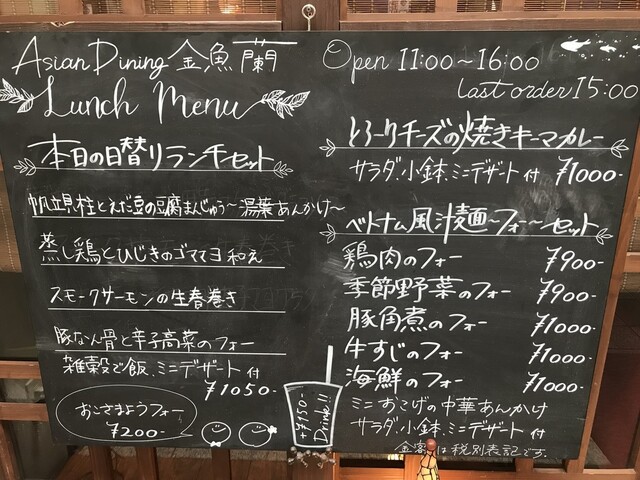 Asian Dining 金魚蘭
Lunch Menu
本日の日替りランチセット
帆立貝柱とえだ豆の豆腐まんじゅう〜湯葉あんかけ〜
蒸し鶏とひじきのゴママヨ和え
スモークサーモンの生春巻き
豚なん骨と辛子高菜のフォー
雑穀ご飯、ミニデザート付
¥1050-
おこさまようフォー
¥200-
+¥150-
Drink!!
Open 11:00~16:00
Last order 15:00
とろ〜りチーズの焼きキーマカレー
サラダ、小鉢、ミニデザート付 ¥1000-
ベトナム風汁麺〜フォー〜セット
鶏肉のフォー ¥900-
季節野菜のフォー ¥900-
豚角煮のフォー ¥1000-
牛すじのフォー ¥1000-
海鮮のフォー ¥1000-
ミニおこげの中華あんかけ
サラダ、小鉢、ミニデザート付
は税別表記です。